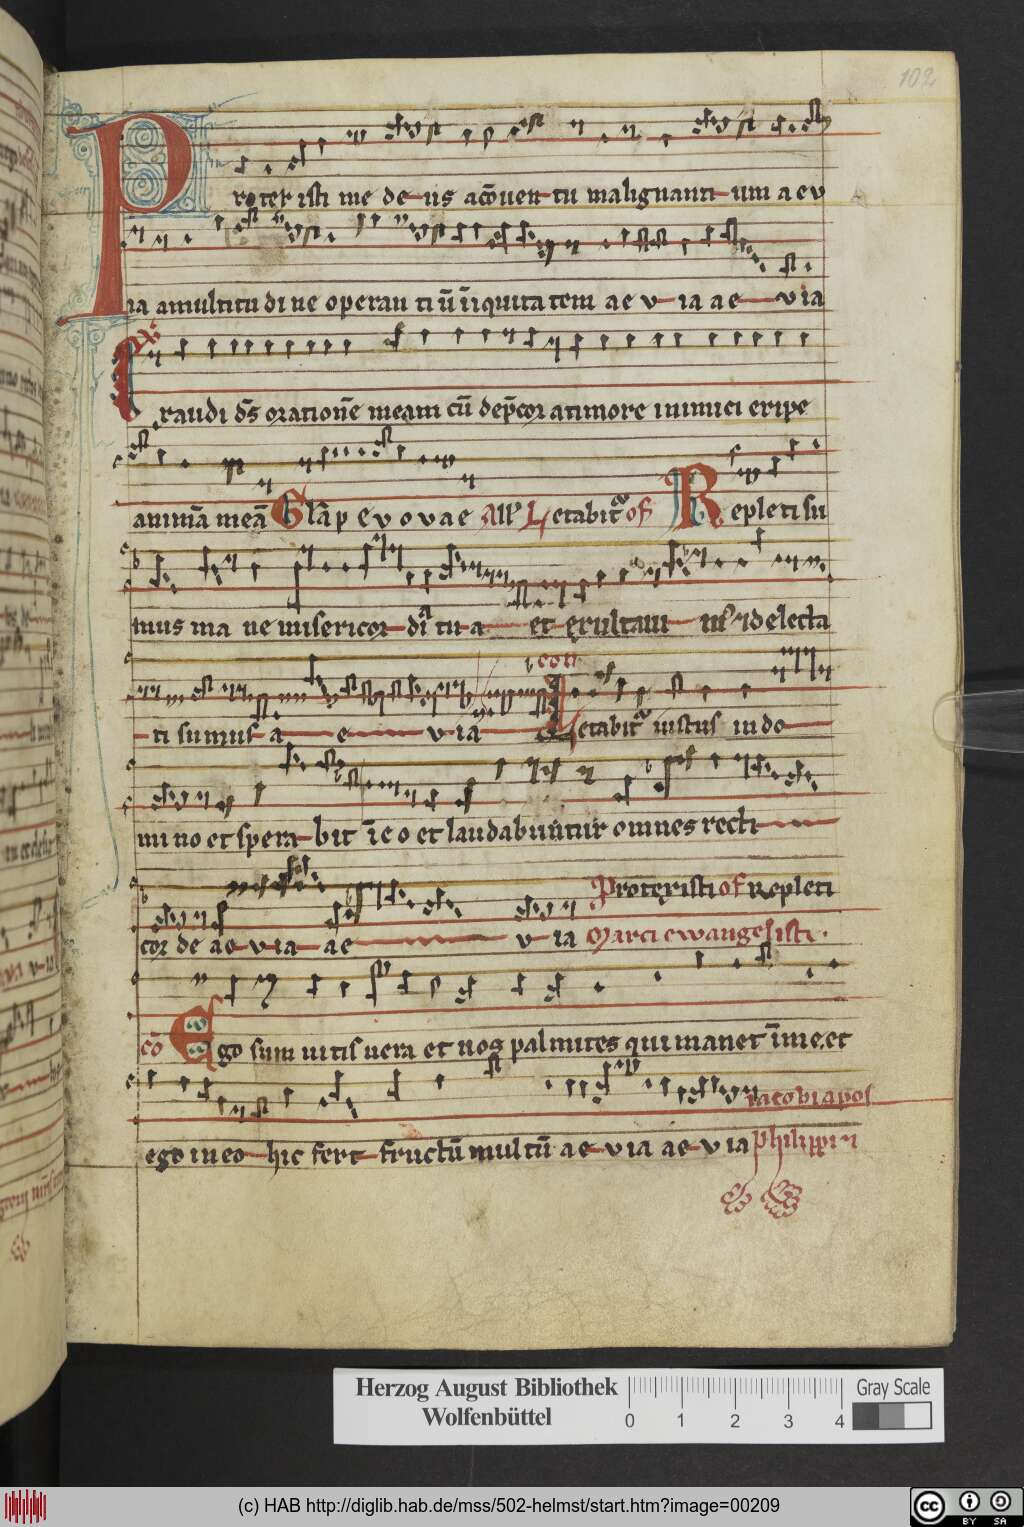 102
Protexisti me de-us acōuen-tu malignanti-um aev
ia amultitudine operanti ū īiquitatem aev-iaae-via
ps
Exaudi ds orationē meam cū dep̄cor atimore inimici eripe
animā meā Glāp evovae All' Letabit of Repleti su
mus mane misericor-dia tu-a et exultaui- mus 7 delecta
-ti sumus a-e-v-ia con Letabit iustus indo-
mino et spera-bit ī eo et laudabuntur omnes recti-
Protexisti of Repleti
corde ae-via-ae-v-ia Marci ewangelisti.
cō Ego sum uitis uera et uos palmites qui manet ī me. et
iacobi apos
ego in eo-hic fert-fructū multū ae-via ae-via philippi
Herzog August Bibliothek
Wolfenbüttel
0 1 2 3 4
Gray Scale
(c) HAB http://diglib.hab.de/mss/502-helmst/start.htm?image=00209
cc BY SA